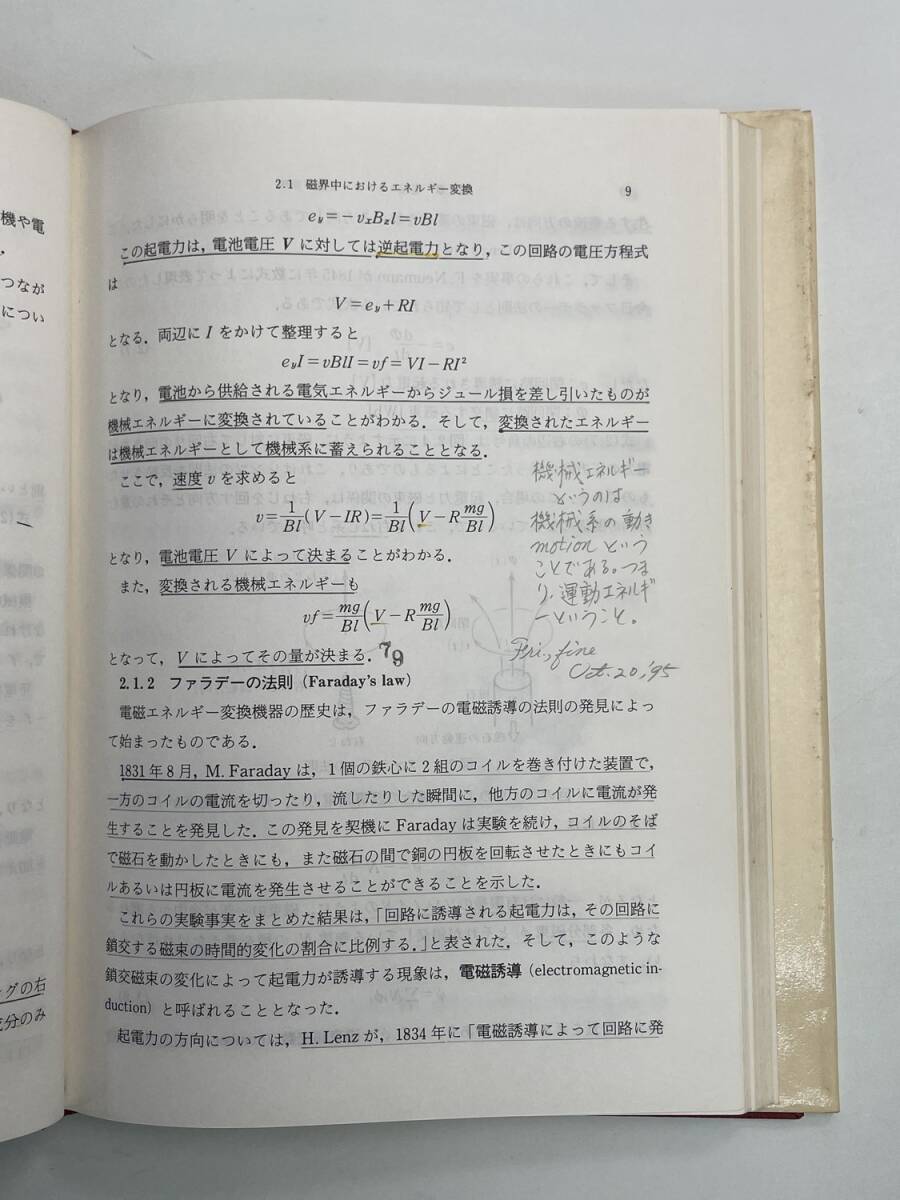 機や電
つなが
につい
ングの右
成分のみ
2.1 磁界中におけるエネルギー変換 9
e_y=−v_xB_zl=vBl
この起電力は,電池電圧 V に対しては逆起電力となり,この回路の電圧方程式
は
V=e_y+RI
となる.両辺に I をかけて整理すると
e_yI=vBlI=vf=VI−RI²
となり,電池から供給される電気エネルギーからジュール損を差し引いたものが
機械エネルギーに変換されていることがわかる.そして,変換されたエネルギー
は機械エネルギーとして機械系に蓄えられることとなる.
ここで,速度 v を求めると
v=1/Bl(V−IR)=1/Bl(V−R mg/Bl)
となり,電池電圧 V によって決まることがわかる.
また,変換される機械エネルギーも
vf=mg/Bl(V−R mg/Bl)
となって,V によってその量が決まる.
79
機械エネルギー
というのは
機械系の動き
motion という
ことである。つま
り、運動エネルギ
ーということ。
Fri., fine
Oct. 20, '95
2.1.2 ファラデーの法則 (Faraday's law)
電磁エネルギー変換機器の歴史は,ファラデーの電磁誘導の法則の発見によっ
て始まったものである.
1831年8月,M. Faraday は,1個の鉄心に2組のコイルを巻き付けた装置で,
一方のコイルの電流を切ったり,流したりした瞬間に,他方のコイルに電流が発
生することを発見した.この発見を契機に Faraday は実験を続け,コイルのそば
で磁石を動かしたときにも,また磁石の間で銅の円板を回転させたときにもコイ
ルあるいは円板に電流を発生させることができることを示した.
これらの実験事実をまとめた結果は,「回路に誘導される起電力は,その回路に
鎖交する磁束の時間的変化の割合に比例する.」と表された.そして,このような
鎖交磁束の変化によって起電力が誘導する現象は,電磁誘導 (electromagnetic in-
duction) と呼ばれることとなった.
起電力の方向については,H. Lenz が,1834年に「電磁誘導によって回路に発